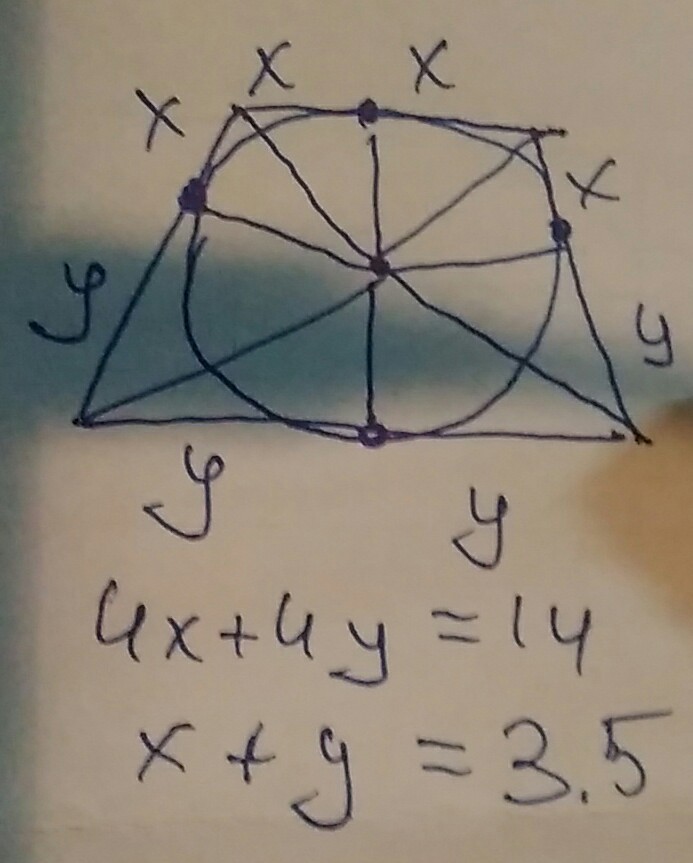 x x
x
x
y
y
y
y
4x+4y=14
x+y=3.5